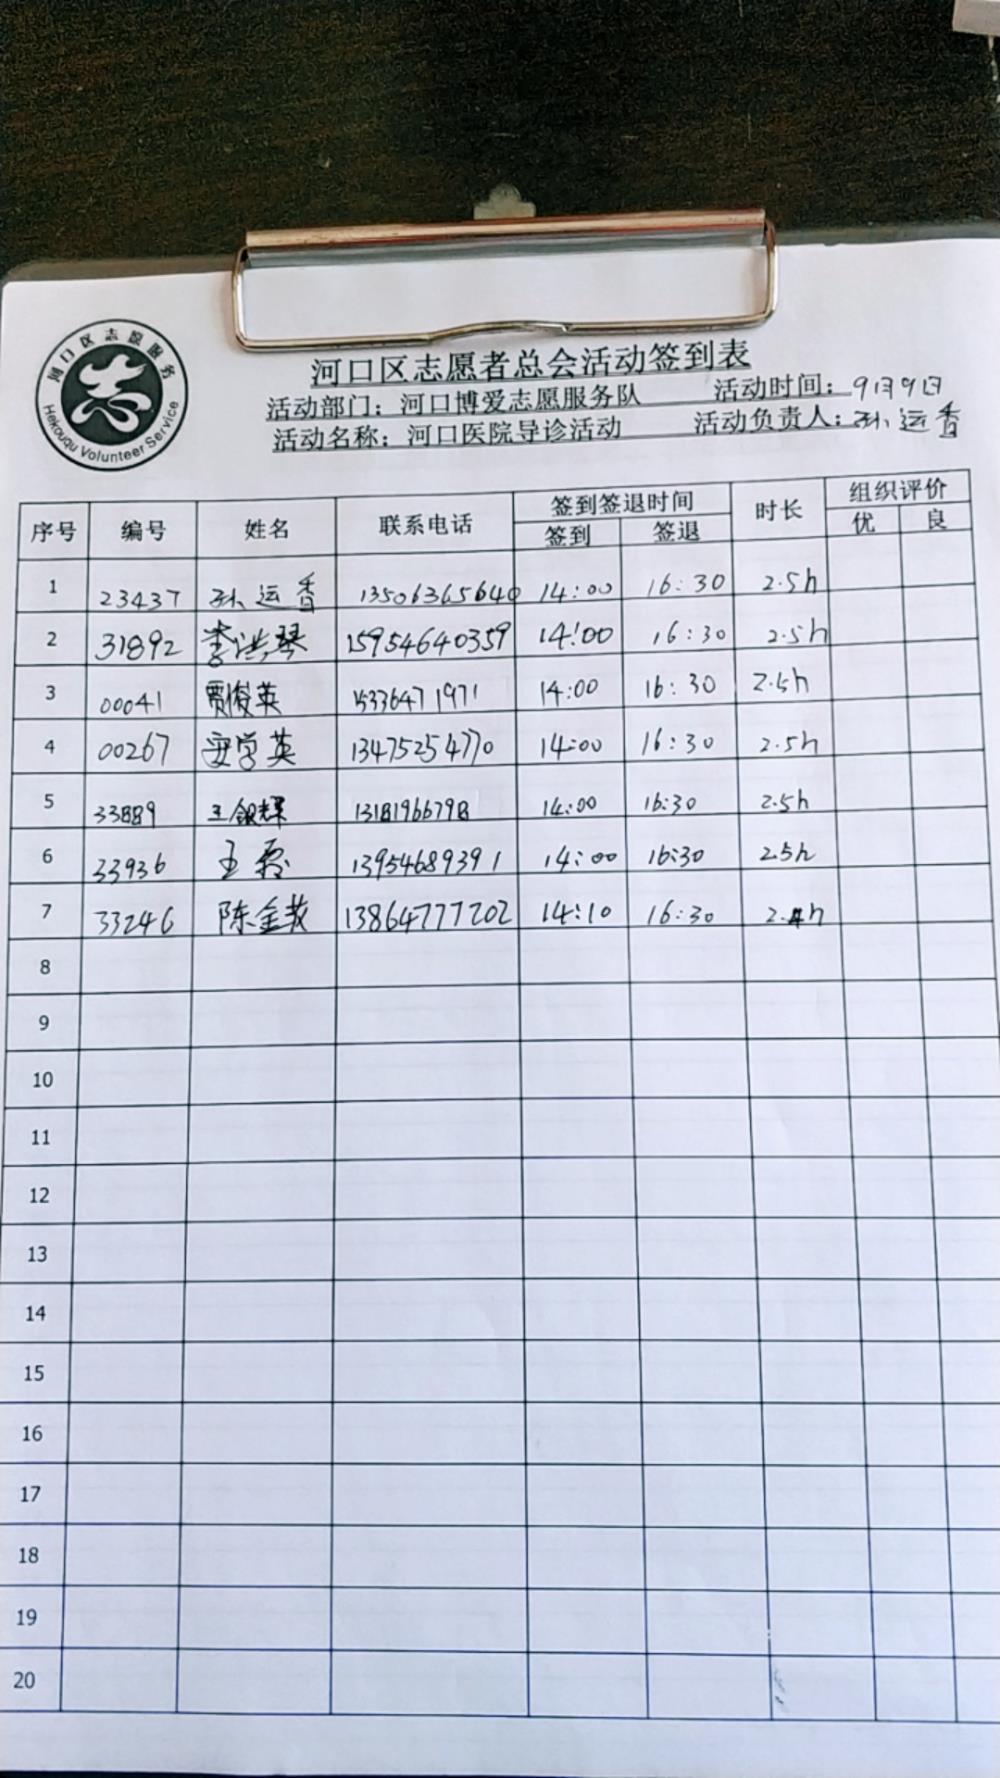 河口区志愿服务
Hekouqu Volunteer Service
河口区志愿者总会活动签到表
活动部门：河口博爱志愿服务队 活动时间：9月9日
活动名称：河口医院导诊活动 活动负责人：孙运香
序号 编号 姓名 联系电话 签到签退时间 时长 组织评价
签到 签退 优 良
1 23437 孙运香 13506365640 14:00 16:30 2.5h
2 31892 李洪琴 15954640359 14:00 16:30 2.5h
3 00041 贾俊英 15336471971 14:00 16:30 2.5h
4 00267 安学英 13475254770 14:00 16:30 2.5h
5 33889 王银辉 13181966798 14:00 16:30 2.5h
6 33936 王霞 13954689391 14:00 16:30 2.5h
7 33246 陈金 13864777202 14:10 16:30 2.4h
8
9
10
11
12
13
14
15
16
17
18
19
20